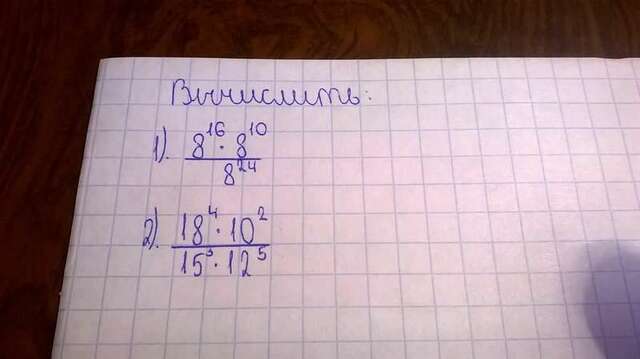 Вычислить:
1). 8^16 · 8^10 / 8^24
2). 18^4 · 10^2 / 15^3 · 12^5